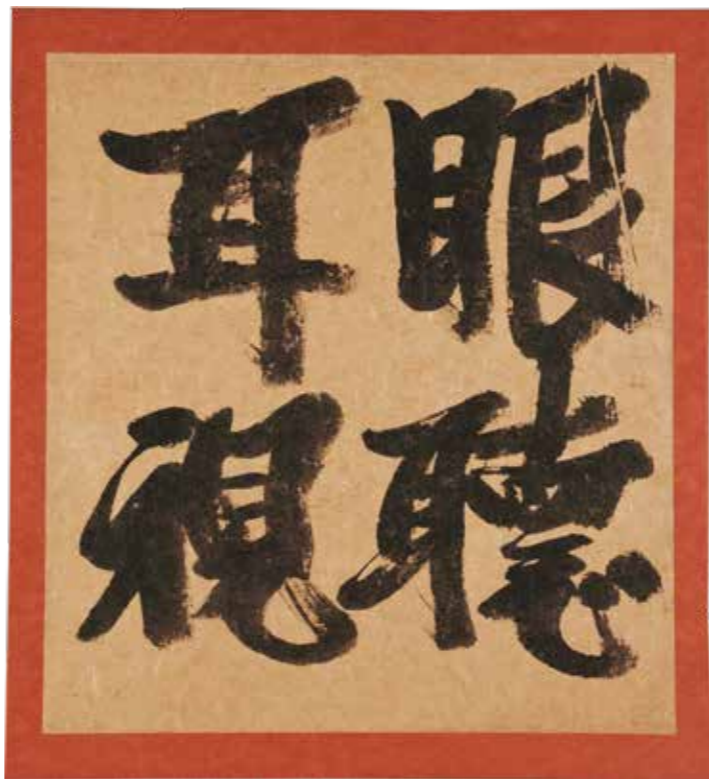 眼聽
耳視